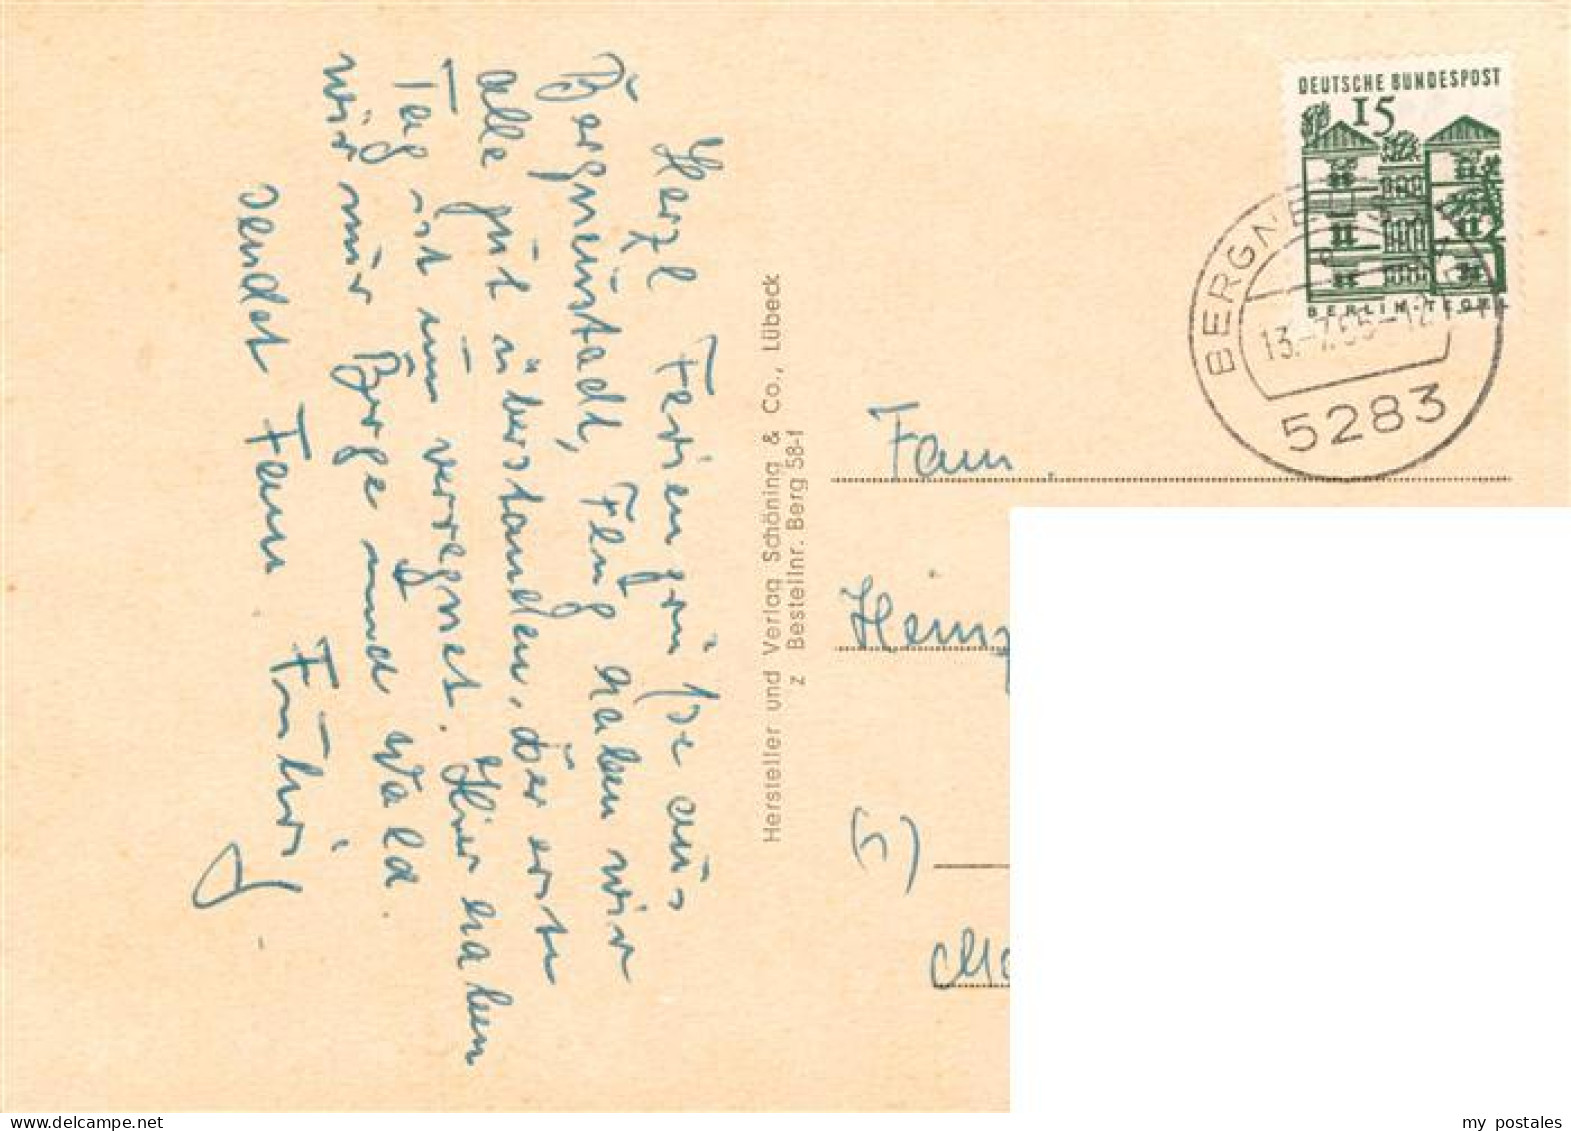 Herzl. Feriengrüße aus
Bergneustadt, Flug haben wir
alle gut überstanden, der erste
Tag ist nun verregnet. Hier haben
wir nur Berge und Wald.
sendet Fam.
Hersteller und Verlag Schöning & Co., Lübeck
z Bestellnr. Berg 58-1
DEUTSCHE BUNDESPOST
15
BERLIN-TEGEL
BERGNE
13.-7.65-12
5283
Fam.
Heinz
my_postales